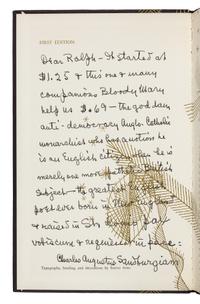 FIRST EDITION
Dear Ralph - It started at
$1.25 & this one & many
companions Bloody Mary
help us $.69 - the god dam
anti-democracy Anglo-Catholic
monarchist who has a notion he
is an English citizen when he is
merely one more British
subject - the greatest English
poet ever born in New England
& raised in St. Louis pax
vobiscum & requiescat in pace:
Charles Augustus Sandburgiam
Typography, binding, and decorations by